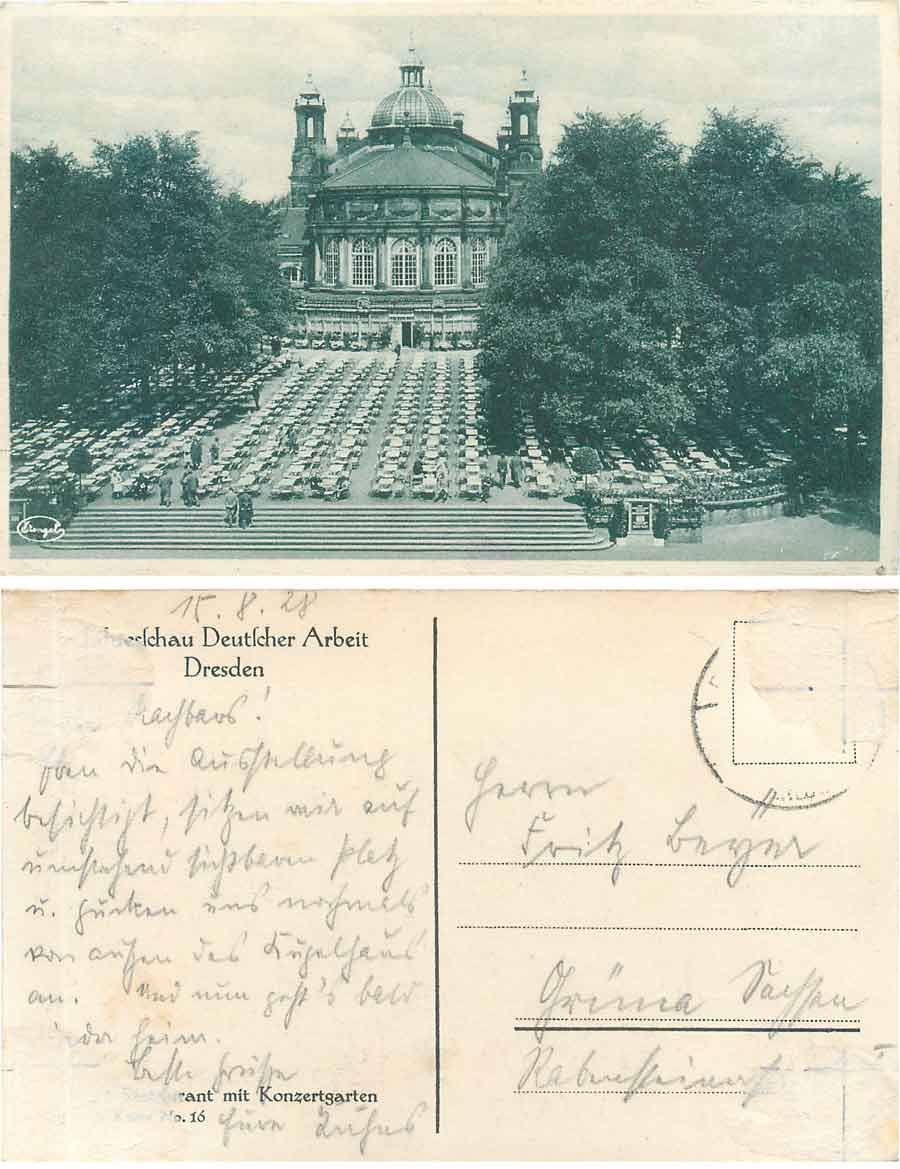 Stengel
15. 8. 28
schau Deutscher Arbeit
Dresden
Nachbars!
die Ausstellung
besichtigt, sitzen wir auf
umstehend sichtbaren Platz
u. gucken uns nochmals
von außen das Kugelhaus
an. Und nun geht's bald
heim.
Beste Grüße
rant mit Konzertgarten
No. 16
Eure Kuhns
Herrn
Fritz Beyer
Grüna Sachsen